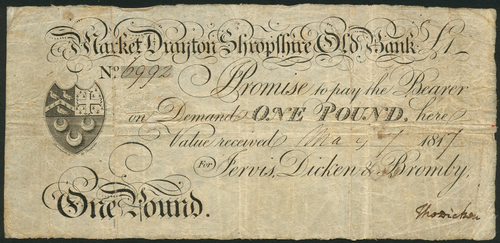 Market Drayton Shropshire Old Bank £1
No. 6992
I Promise to pay the Bearer
on Demand ONE POUND, here
Value received May 7 1817
For Jervis, Dicken & Bromby,
One Pound.
Tho Dicken